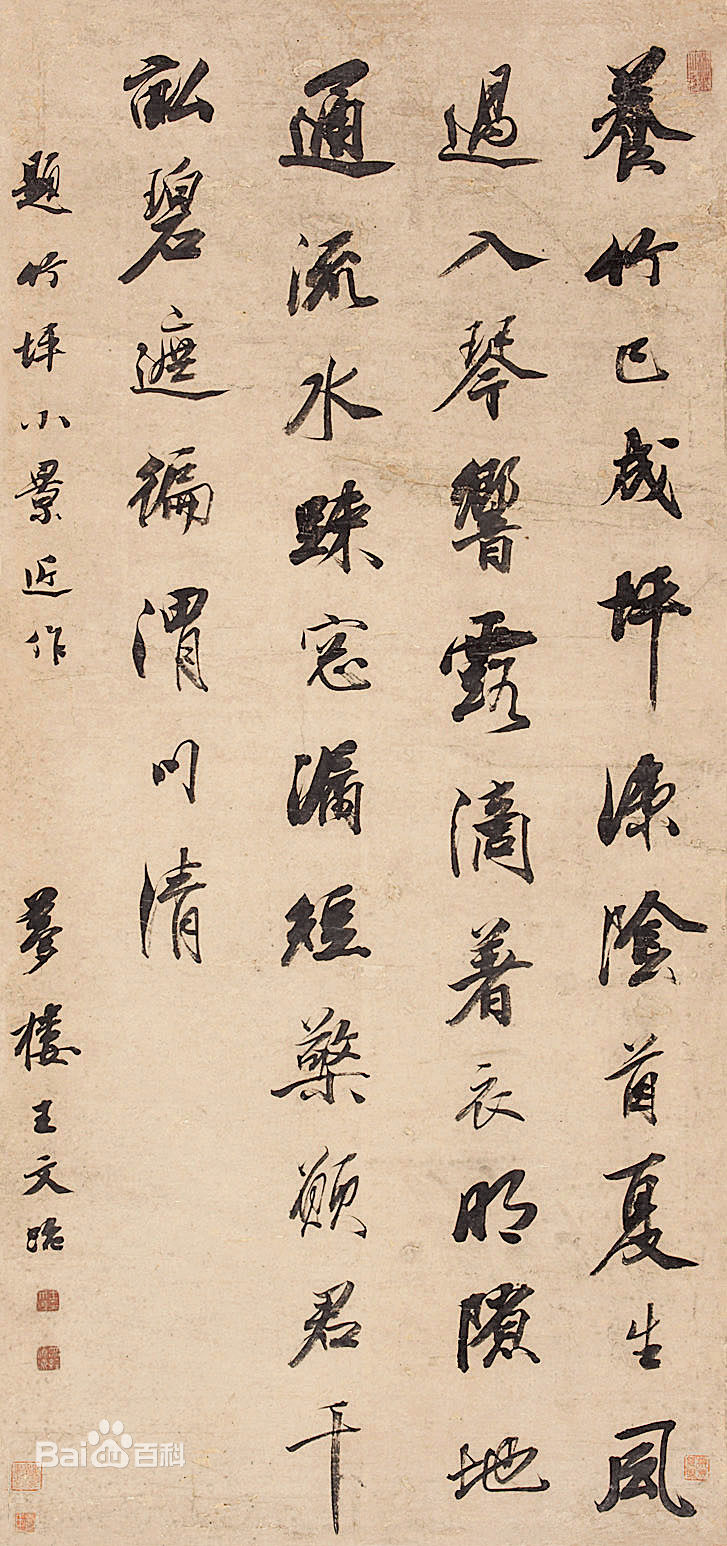 養竹已成坪涼陰首夏生風
過入琴響露滴著衣明隙地
通流水踈窓漏短檠願君千
畝碧遮徧渭川清
題竹坪小景近作
夢樓王文治
Bai百科